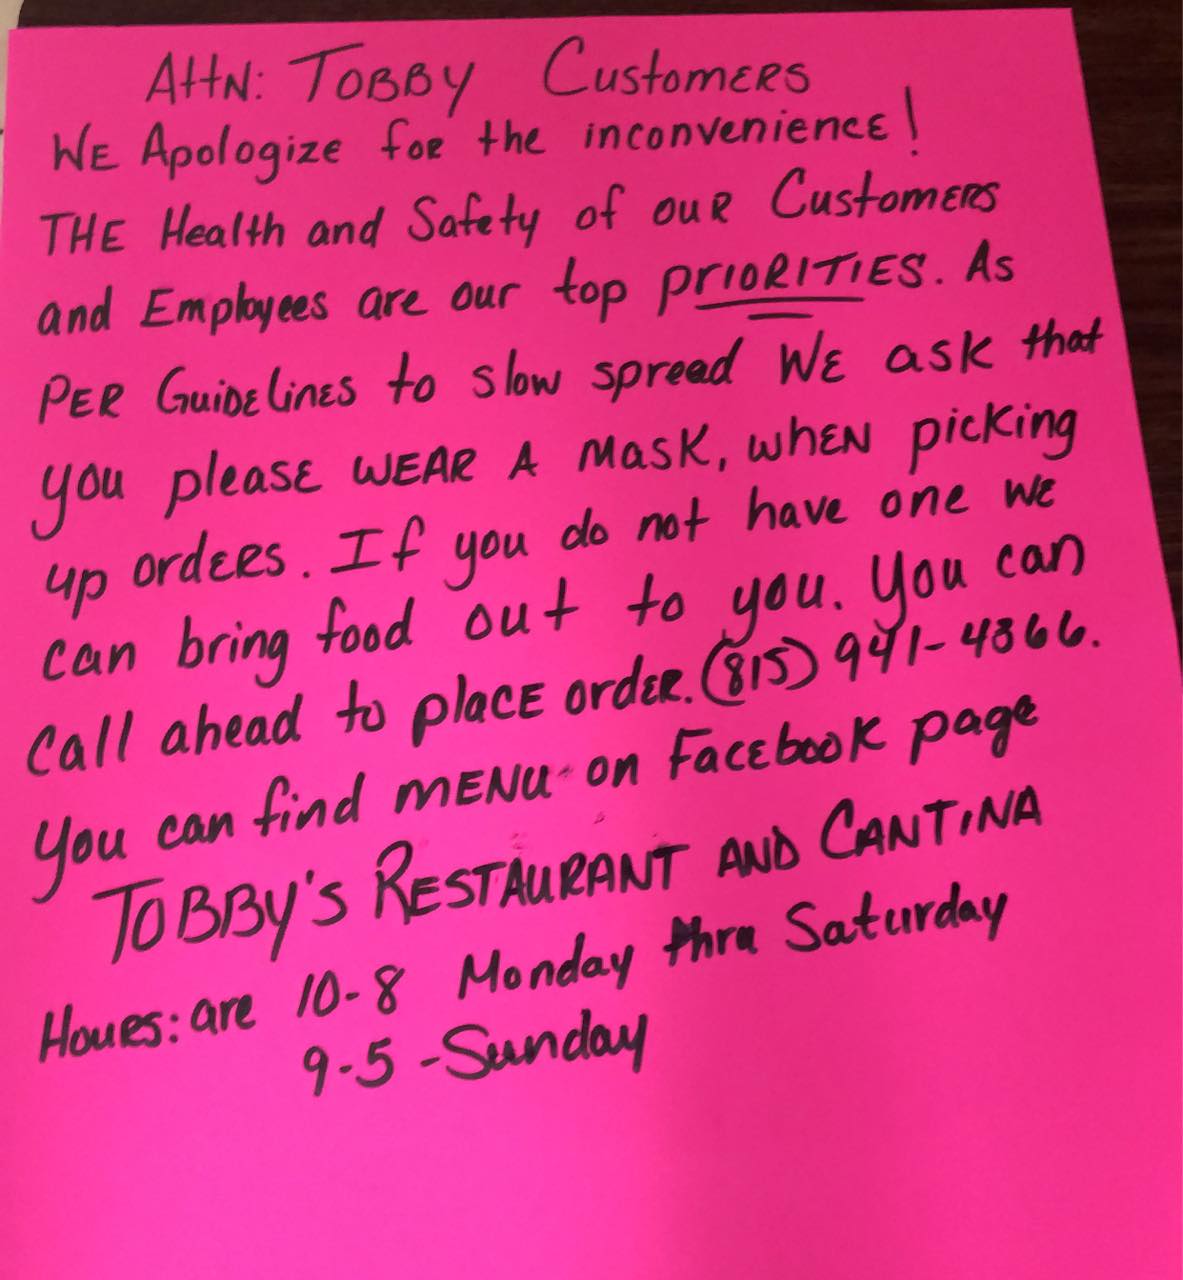 Attn: TOBBY Customers
WE Apologize for the inconvenience!
THE Health and Safety of our Customers
and Employees are our top priorities. As
PER Guidelines to slow spread WE ask that
you please WEAR A Mask, when picking
up orders. If you do not have one we
can bring food out to you. You can
Call ahead to place order. (815) 941-4366.
You can find MENU on Facebook page
TOBBY'S RESTAURANT AND CANTINA
Hours: are 10-8 Monday thru Saturday
9-5 - Sunday